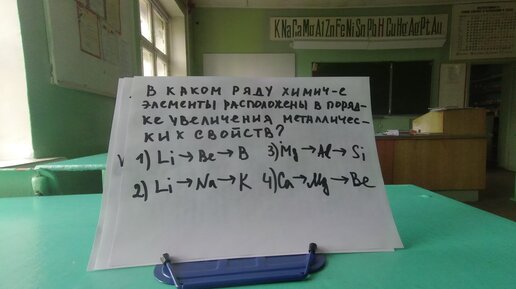 K Na Ca Mg Al Zn Fe Ni Sn Pb H Cu Hg Ag Pt Au
В КАКОМ РЯДУ ХИМИЧ-Е
ЭЛЕМЕНТЫ РАСПОЛОЖЕНЫ В ПОРЯД-
КЕ УВЕЛИЧЕНИЯ МЕТАЛЛИЧЕС-
КИХ СВОЙСТВ?
1) Li→Be→B 3) Mg→Al→Si
2) Li→Na→K 4) Ca→Mg→Be